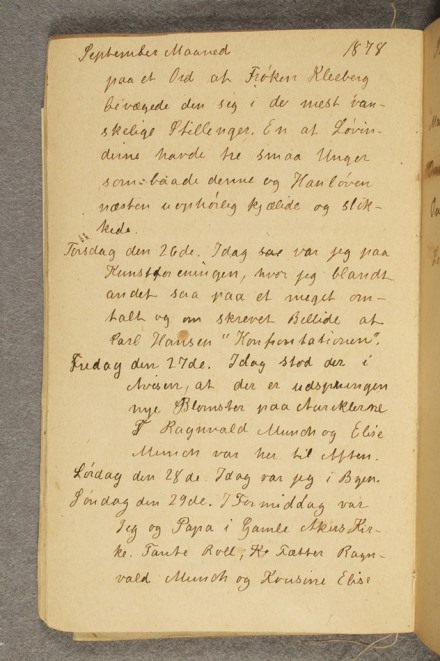 September Maaned 1878
paa et Ord af Frøken Kleeberg
bevægede den sig i de mest van-
skelige Stillenger. En af Løvin-
derne havde tre smaa Unger
som baade denne og Hanløven
næsten uophørlig kjælede og slik-
kede.
Torsdag den 26de. Idag var jeg paa
Kunstforeningen, hvor jeg blandt
andet saa paa et meget om-
talt og om skrevet Billide af
Carl Hansen "Konfrontationen".
Fredag den 27de. Idag stod der i
Avisen, at der er udsprungen
nye Blomster paa Auriklerne
F Ragnvald Munch og Elise
Munch var her til Aften.
Lørdag den 28de. Idag var jeg i Byen.
Søndag den 29de. I Formiddag var
Jeg og Papa i Gamle Akers Kir-
ke. Tante Roll, Fætter Ragn-
vald Munch og Kousine Elise